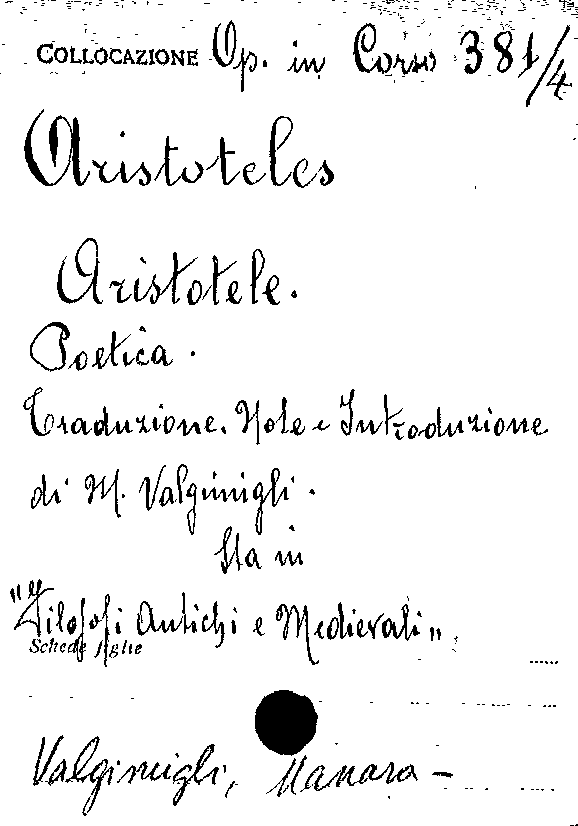 COLLOCAZIONE Op. in Corso 381/4
Aristoteles
Aristotele.
Poetica.
Traduzione. Note e Introduzione
di M. Valgimigli.
Sta in
"Filosofi Antichi e Medievali"
Schede figlie
Valgimigli, Manara -